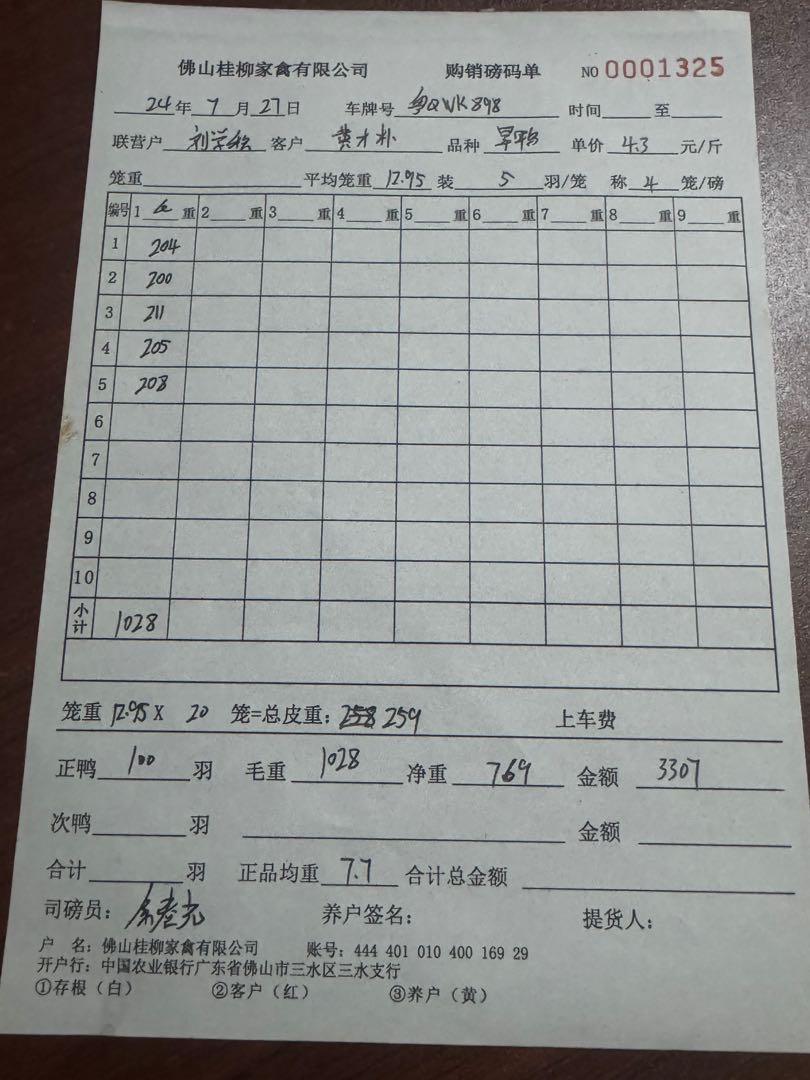 佛山桂柳家禽有限公司 购销磅码单 NO 0001325
24年7月27日 车牌号 粤QWK898 时间 至
联营户 客户 品种 旱鸭 单价 4.3 元/斤
笼重 平均笼重 12.95 装 5 羽/笼 称 4 笼/磅
编号 1 重 2 重 3 重 4 重 5 重 6 重 7 重 8 重 9 重
1 204
2 200
3 211
4 205
5 208
6
7
8
9
10
小计 1028
笼重 12.95 X 20 笼=总皮重: 258 259 上车费
正鸭 100 羽 毛重 1028 净重 769 金额 3307
次鸭 羽 金额
合计 羽 正品均重 7.7 合计总金额
司磅员: 养户签名: 提货人:
户 名: 佛山桂柳家禽有限公司 账号: 444 401 010 400 169 29
开户行: 中国农业银行广东省佛山市三水区三水支行
①存根(白) ②客户(红) ③养户(黄)